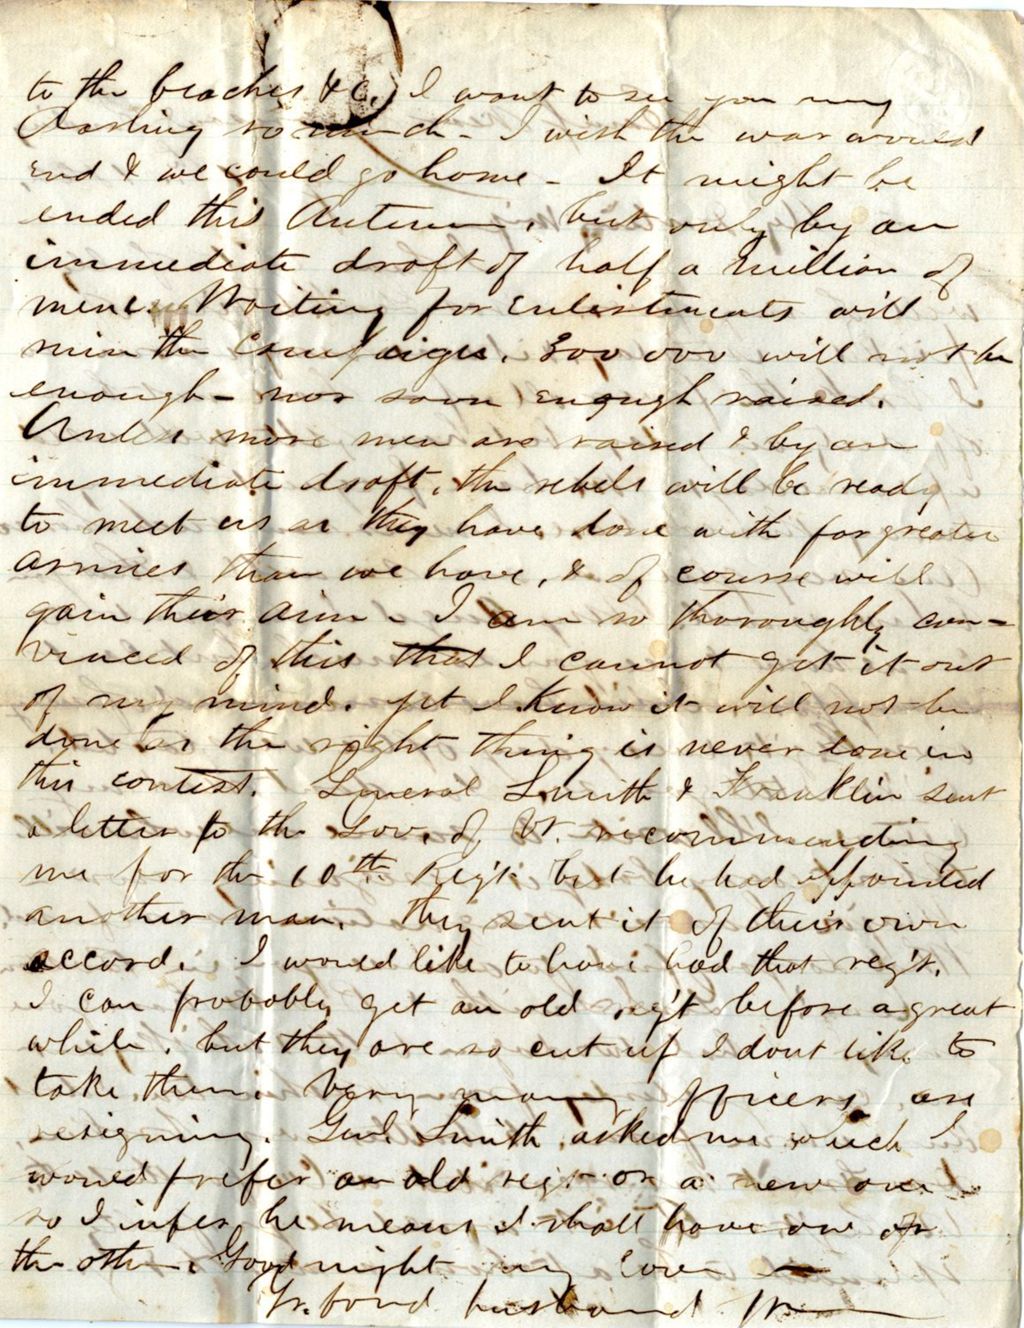 to the beaches &c. I want to see you my
darling so much - I wish the war would
end & we could go home - It might be
ended this Autumn, but only by an
immediate draft of half a million of
men. Waiting for enlistments will
ruin the Campaign. 300 000 will not be
enough - nor soon enough raised.
Unless more men are raised & by an
immediate draft, the rebels will be ready
to meet us as they have done with far greater
armies than we have, & of course will
gain their aim - I am so thoroughly con=
vinced of this that I cannot get it out
of my mind. yet I know it will not be
done as the right thing is never done in
this contest. General Smith & Franklin sent
a letter to the Gov. of Vt. recommending
me for the 10th Reg't but he had appointed
another man. They sent it of their own
accord. I would like to have had that reg't.
I can probably get an old reg't before a great
while, but they are so cut up I dont like to
take them. Very many officers are
resigning. Genl. Smith asked me which I
would prefer an old regt or a new one
so I infer he means I shall have one or
the other. Good night my love -
Yr. fond husband